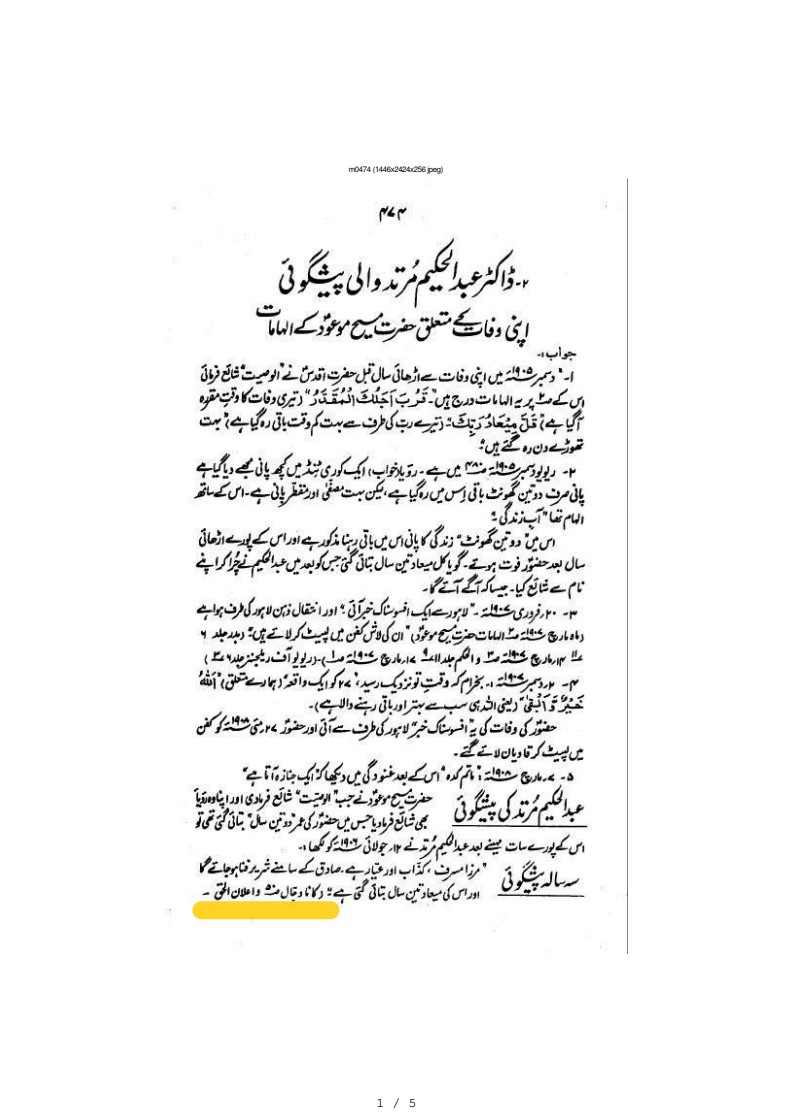 m0474 (1446x2424x256 jpeg)
۴۷۴
۲۔ ڈاکٹر عبدالحکیم مُرتد والی پیشگوئی
اپنی وفات کے متعلق حضرت مسیح موعودؑ کے الہامات
جواب:۔
۱۔ "دسمبر ۱۹۰۵ئہ میں اپنی وفات سے اڑھائی سال قبل حضرت اقدسؑ نے "الوصیت" شائع فرمائی
اس کے پر یہ الہامات درج ہیں"۔ قَرُبَ اَجَلُكَ الْمُقَدَّرُ" (تیری وفات کا وقتِ مقررہ
آگیا ہے) قَلَّ مِيْعَادُ رَبِّكَ"۔ (تیرے ربّ کی طرف سے بہت کم وقت باقی رہ گیا ہے) "بہت
تھوڑے دن رہ گئے ہیں"
۲۔ ریویو دسمبر ۱۹۰۵ئہ ص۴۸۰ میں ہے۔ رؤیا (خواب) ایک کوری ٹنڈ میں کچھ پانی مجھے دیا گیا ہے
پانی صرف دو تین گھونٹ باقی اِس میں رہ گیا ہے، لیکن بہت مصفّٰی اور مقطّر پانی ہے۔ اس کے ساتھ
الہام تھا "آبِ زندگی"
اس میں "دو تین گھونٹ" زندگی کا پانی اس میں باقی رہنا مذکور ہے اور اس کے پورے اڑھائی
سال بعد حضورؑ فوت ہوئے۔ گویا کل میعاد تین سال بتائی گئی جس کو بعد میں عبدالحکیم نے چُرا کر اپنے
نام سے شائع کیا۔ جیسا کہ آگے آئے گا۔
۳۔ ۲۰؍فروری ۱۹۰۷ئہ۔ "لاہور سے ایک افسوسناک خبر آئی"؛ اور انتقال ذہن لاہور کی طرف ہوا ہے
(ماہ مارچ ۱۹۰۷ئہ الہامات حضرت مسیح موعودؑ) "ان کی لاش کفن میں لپیٹ کر لائے ہیں"۔ (بدر جلد ۶
۱۱ ۱۴؍مارچ ۱۹۰۷ئہ ص۳ و الحکم جلد ۱۱ ۹ ۱۷؍مارچ ۱۹۰۷ئہ ص۱)۔ (ریویو آف ریلیجنز جلد ۶ ۳)
۴۔ ۲؍دسمبر ۱۹۰۷ئہ:۔ بخرام کہ وقتِ تو نزدیک رسید، ۲۷ کو ایک واقعہ (ہمارے متعلق) "اَللّٰهُ
خَيْرٌ وَّ اَبْقٰى" (یعنی اللہ ہی سب سے بہتر اور باقی رہنے والا ہے)۔
حضورؑ کی وفات کی یہ "افسوسناک خبر" لاہور کی طرف سے آئی اور حضورؑ ۲۷؍مئی ۱۹۰۸ئہ کو کفن
میں لپیٹ کر قادیان لائے گئے۔
۵۔ ۷؍مارچ ۱۹۰۸ئہ: "ماتم کدہ" اس کے بعد غنودگی میں دیکھا کہ "ایک جنازہ آتا ہے"
عبدالحکیم مُرتد کی پیشگوئی
حضرت مسیح موعودؑ نے جب "الوصیّت" شائع فرمادی اور اپنا وہ رؤیا
بھی شائع فرمادیا جس میں حضورؑ کی عمر "دو تین سال" بتائی گئی تھی تو
اس کے پورے سات مہینے بعد عبدالحکیم مُرتد نے ۱۲؍جولائی ۱۹۰۶ئہ کو لکھا:۔
سہ سالہ پیشگوئی
"مرزا مسرف، کذّاب اور عیّار ہے۔ صادق کے سامنے شریر فنا ہو جائے گا
اور اس کی میعاد تین سال بتائی گئی ہے"۔ (کانا دجال و اعلان الحق۔
1 / 5